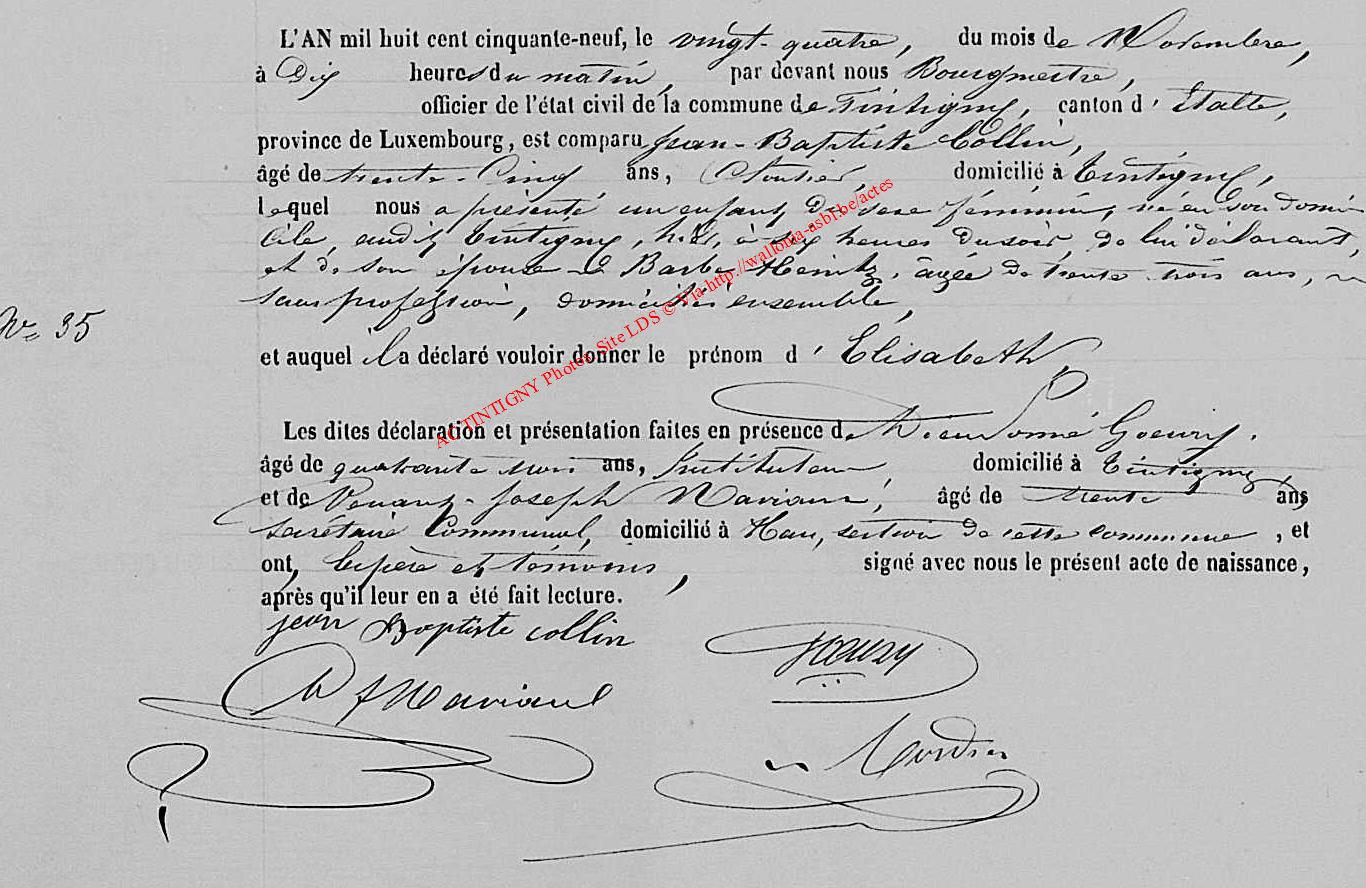 L'AN mil huit cent cinquante-neuf, le vingt-quatre, du mois de Novembre,
à Dix heures du matin, par devant nous Bourgmestre,
officier de l'état civil de la commune de Tintigny, canton d' Etalle,
province de Luxembourg, est comparu Jean-Baptiste Collin,
âgé de trente-cinq ans, Cloutier, domicilié à Tintigny,
lequel nous a présenté un enfant du sexe féminin, né en son domi
cile, audit Tintigny, hier, à six heures du soir, de lui déclarant,
et de son épouse Barbe Heintz, âgée de trente trois ans,
sans profession, domiciliés ensemble,
N° 35
et auquel il a déclaré vouloir donner le prénom d' Elisabeth
Les dites déclaration et présentation faites en présence de Dieudonné Goeury,
âgé de quarante trois ans, Instituteur domicilié à Tintigny
et de Venant-Joseph Naviaux, âgé de trente ans
Secrétaire Communal, domicilié à Han, section de cette commune, et
ont, le père et témoins, signé avec nous le présent acte de naissance,
après qu'il leur en a été fait lecture.
jean Baptiste collin
Goeury
VJNaviaux
ACTINTIGNY Photos Site LDS © Via http://wallonia-asbl.be/actes